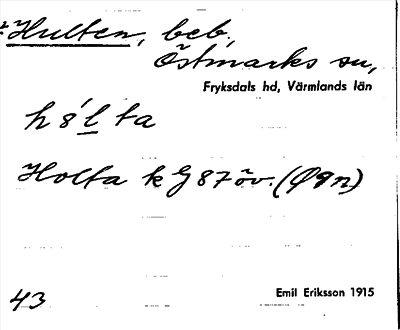 *Hulten, beb.,
Östmarks sn,
Fryksdals hd, Värmlands län
h 8́ l̲ ta
Holta k G 87 öv. (Øgn)
43
Emil Eriksson 1915